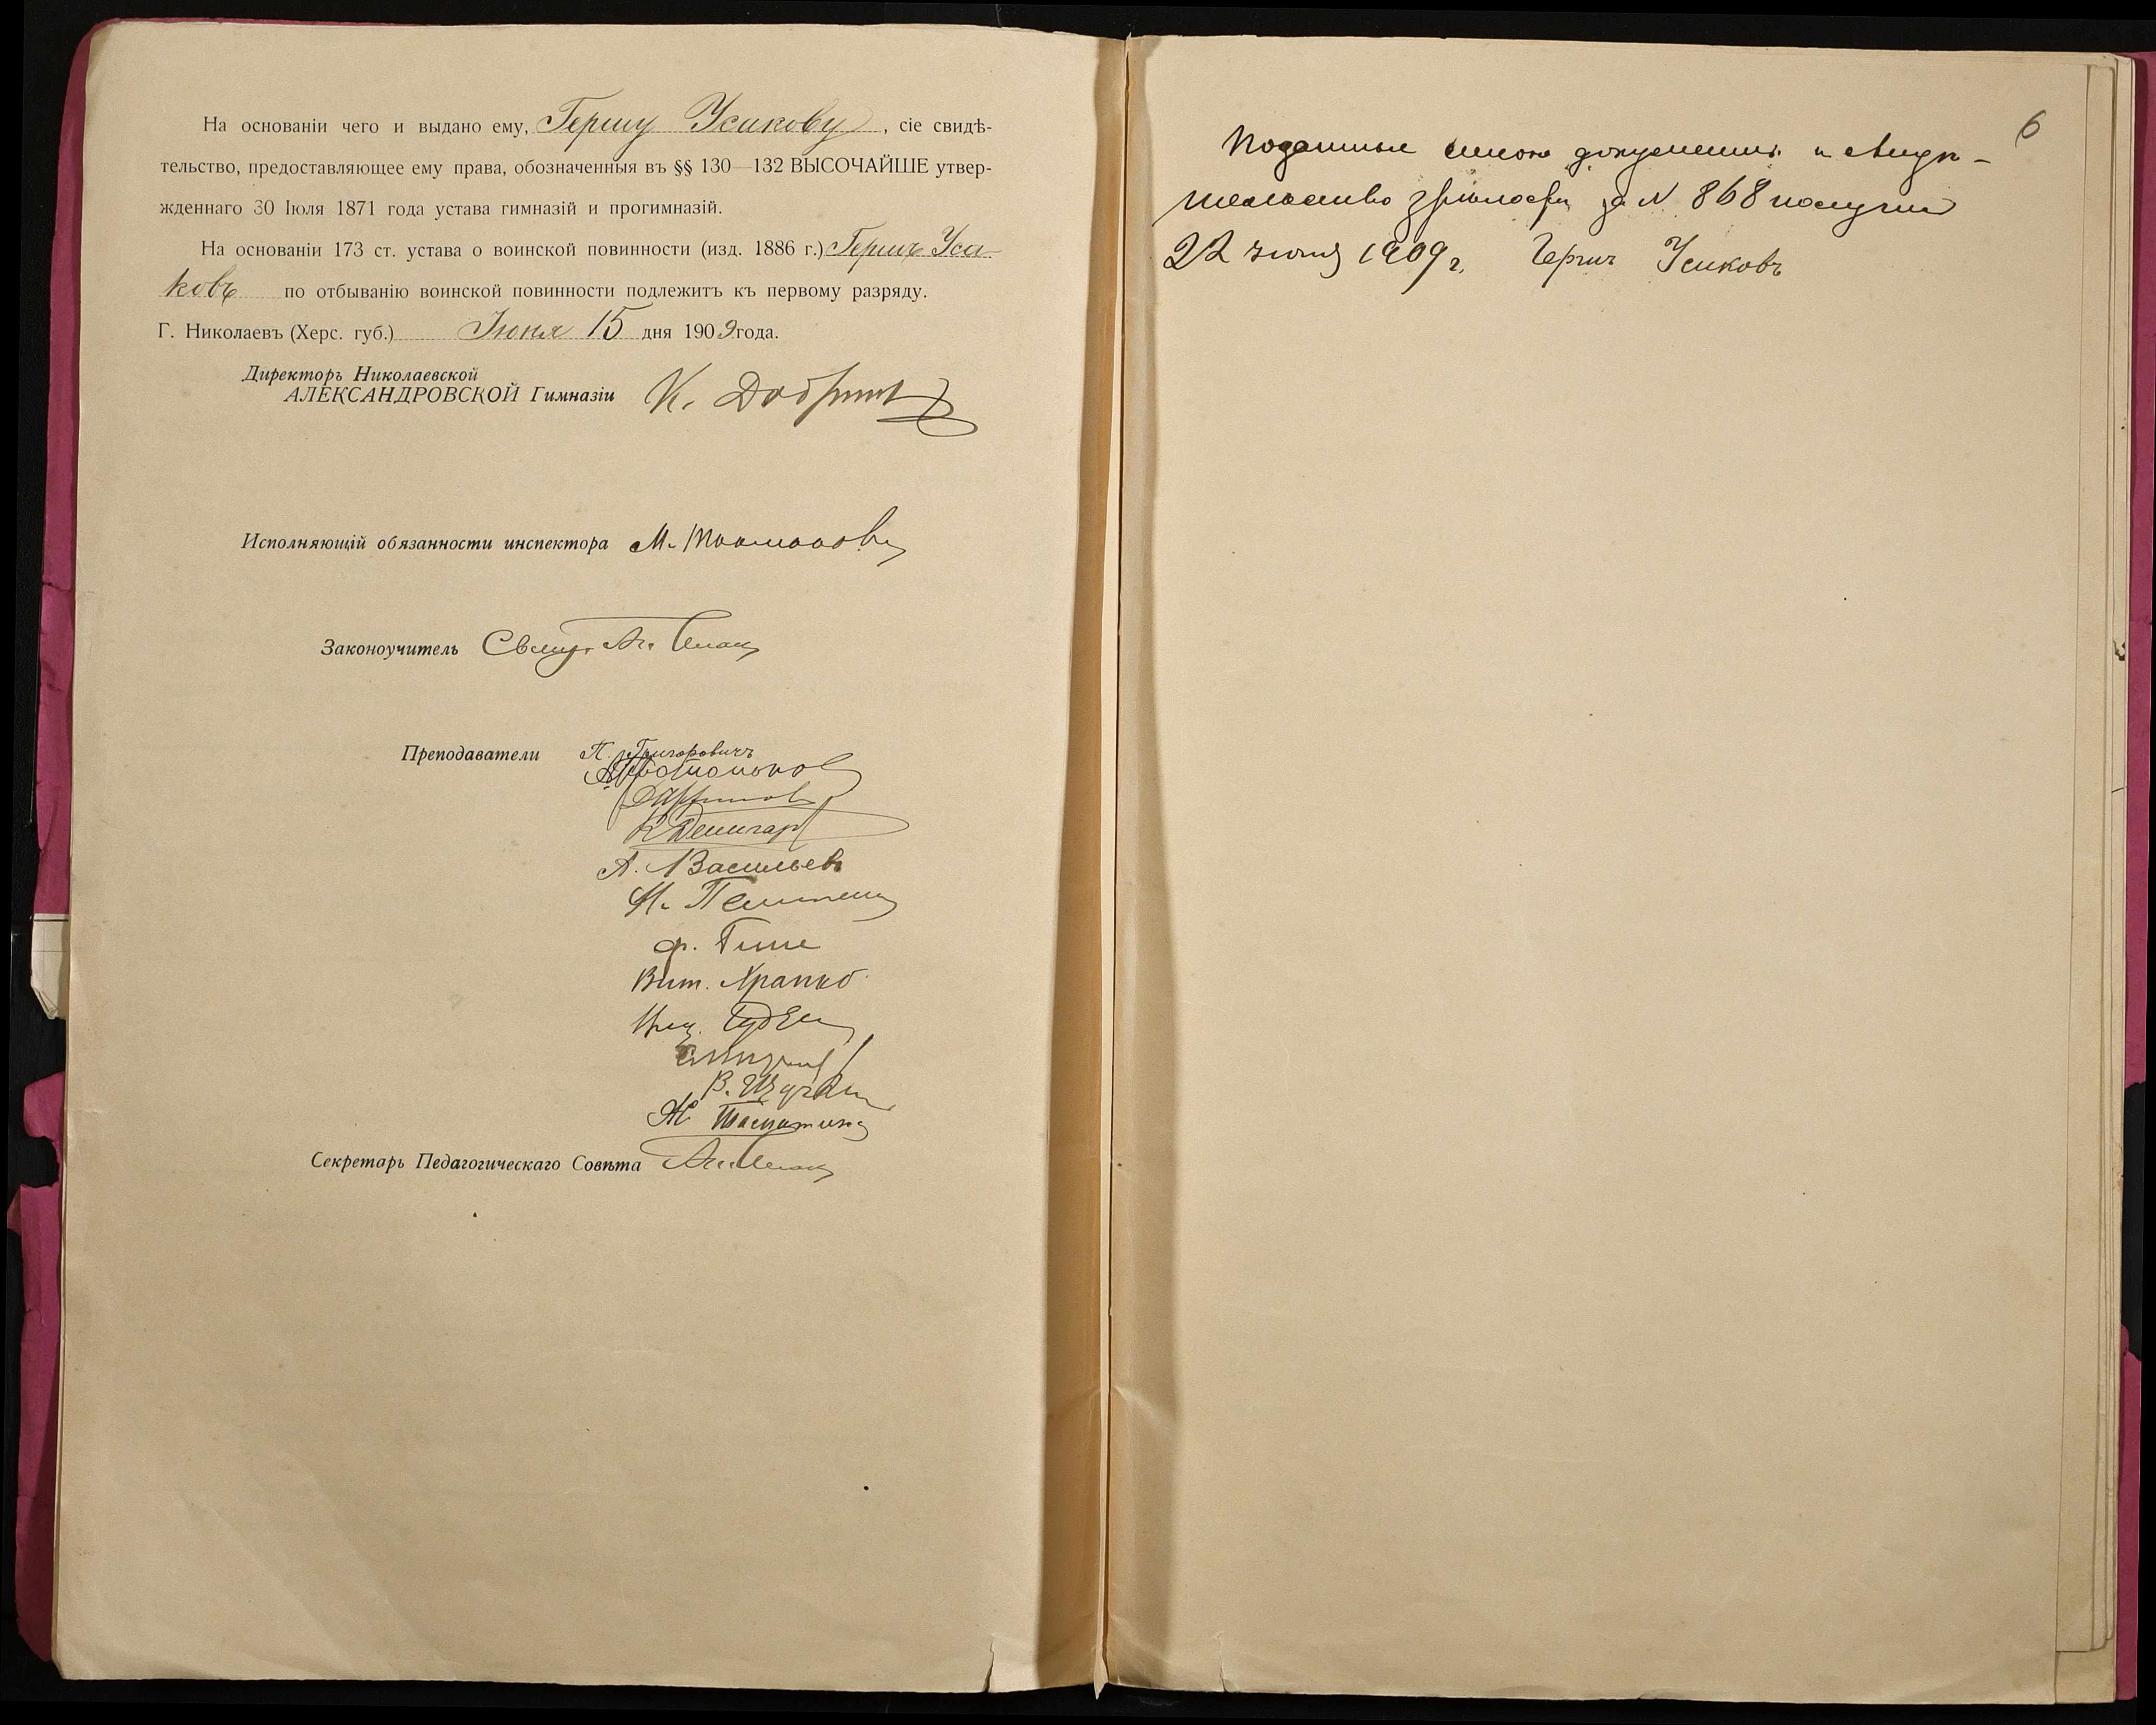 На основаніи чего и выдано ему, Гершу Усикову, сіе свидѣ-
тельство, предоставляющее ему права, обозначенныя въ §§ 130—132 ВЫСОЧАЙШЕ утвер-
жденнаго 30 Іюля 1871 года устава гимназій и прогимназій.
На основаніи 173 ст. устава о воинской повинности (изд. 1886 г.) Гершъ Уси-
ковъ по отбыванію воинской повинности подлежитъ къ первому разряду.
Г. Николаевъ (Херс. губ.) Іюня 15 дня 1909 года.
Директоръ Николаевской
АЛЕКСАНДРОВСКОЙ Гимназіи К.
Исполняющій обязанности инспектора М.
Законоучитель
Преподаватели П. Григоровичъ
А. Васильевъ
Ф.
Вит. Храпко
В.
Секретарь Педагогическаго Совѣта
6
Поданные мною документы и свидѣ-
тельство зрѣлости за N 868 получилъ
22 июня 1909 г. Гершъ Усиковъ